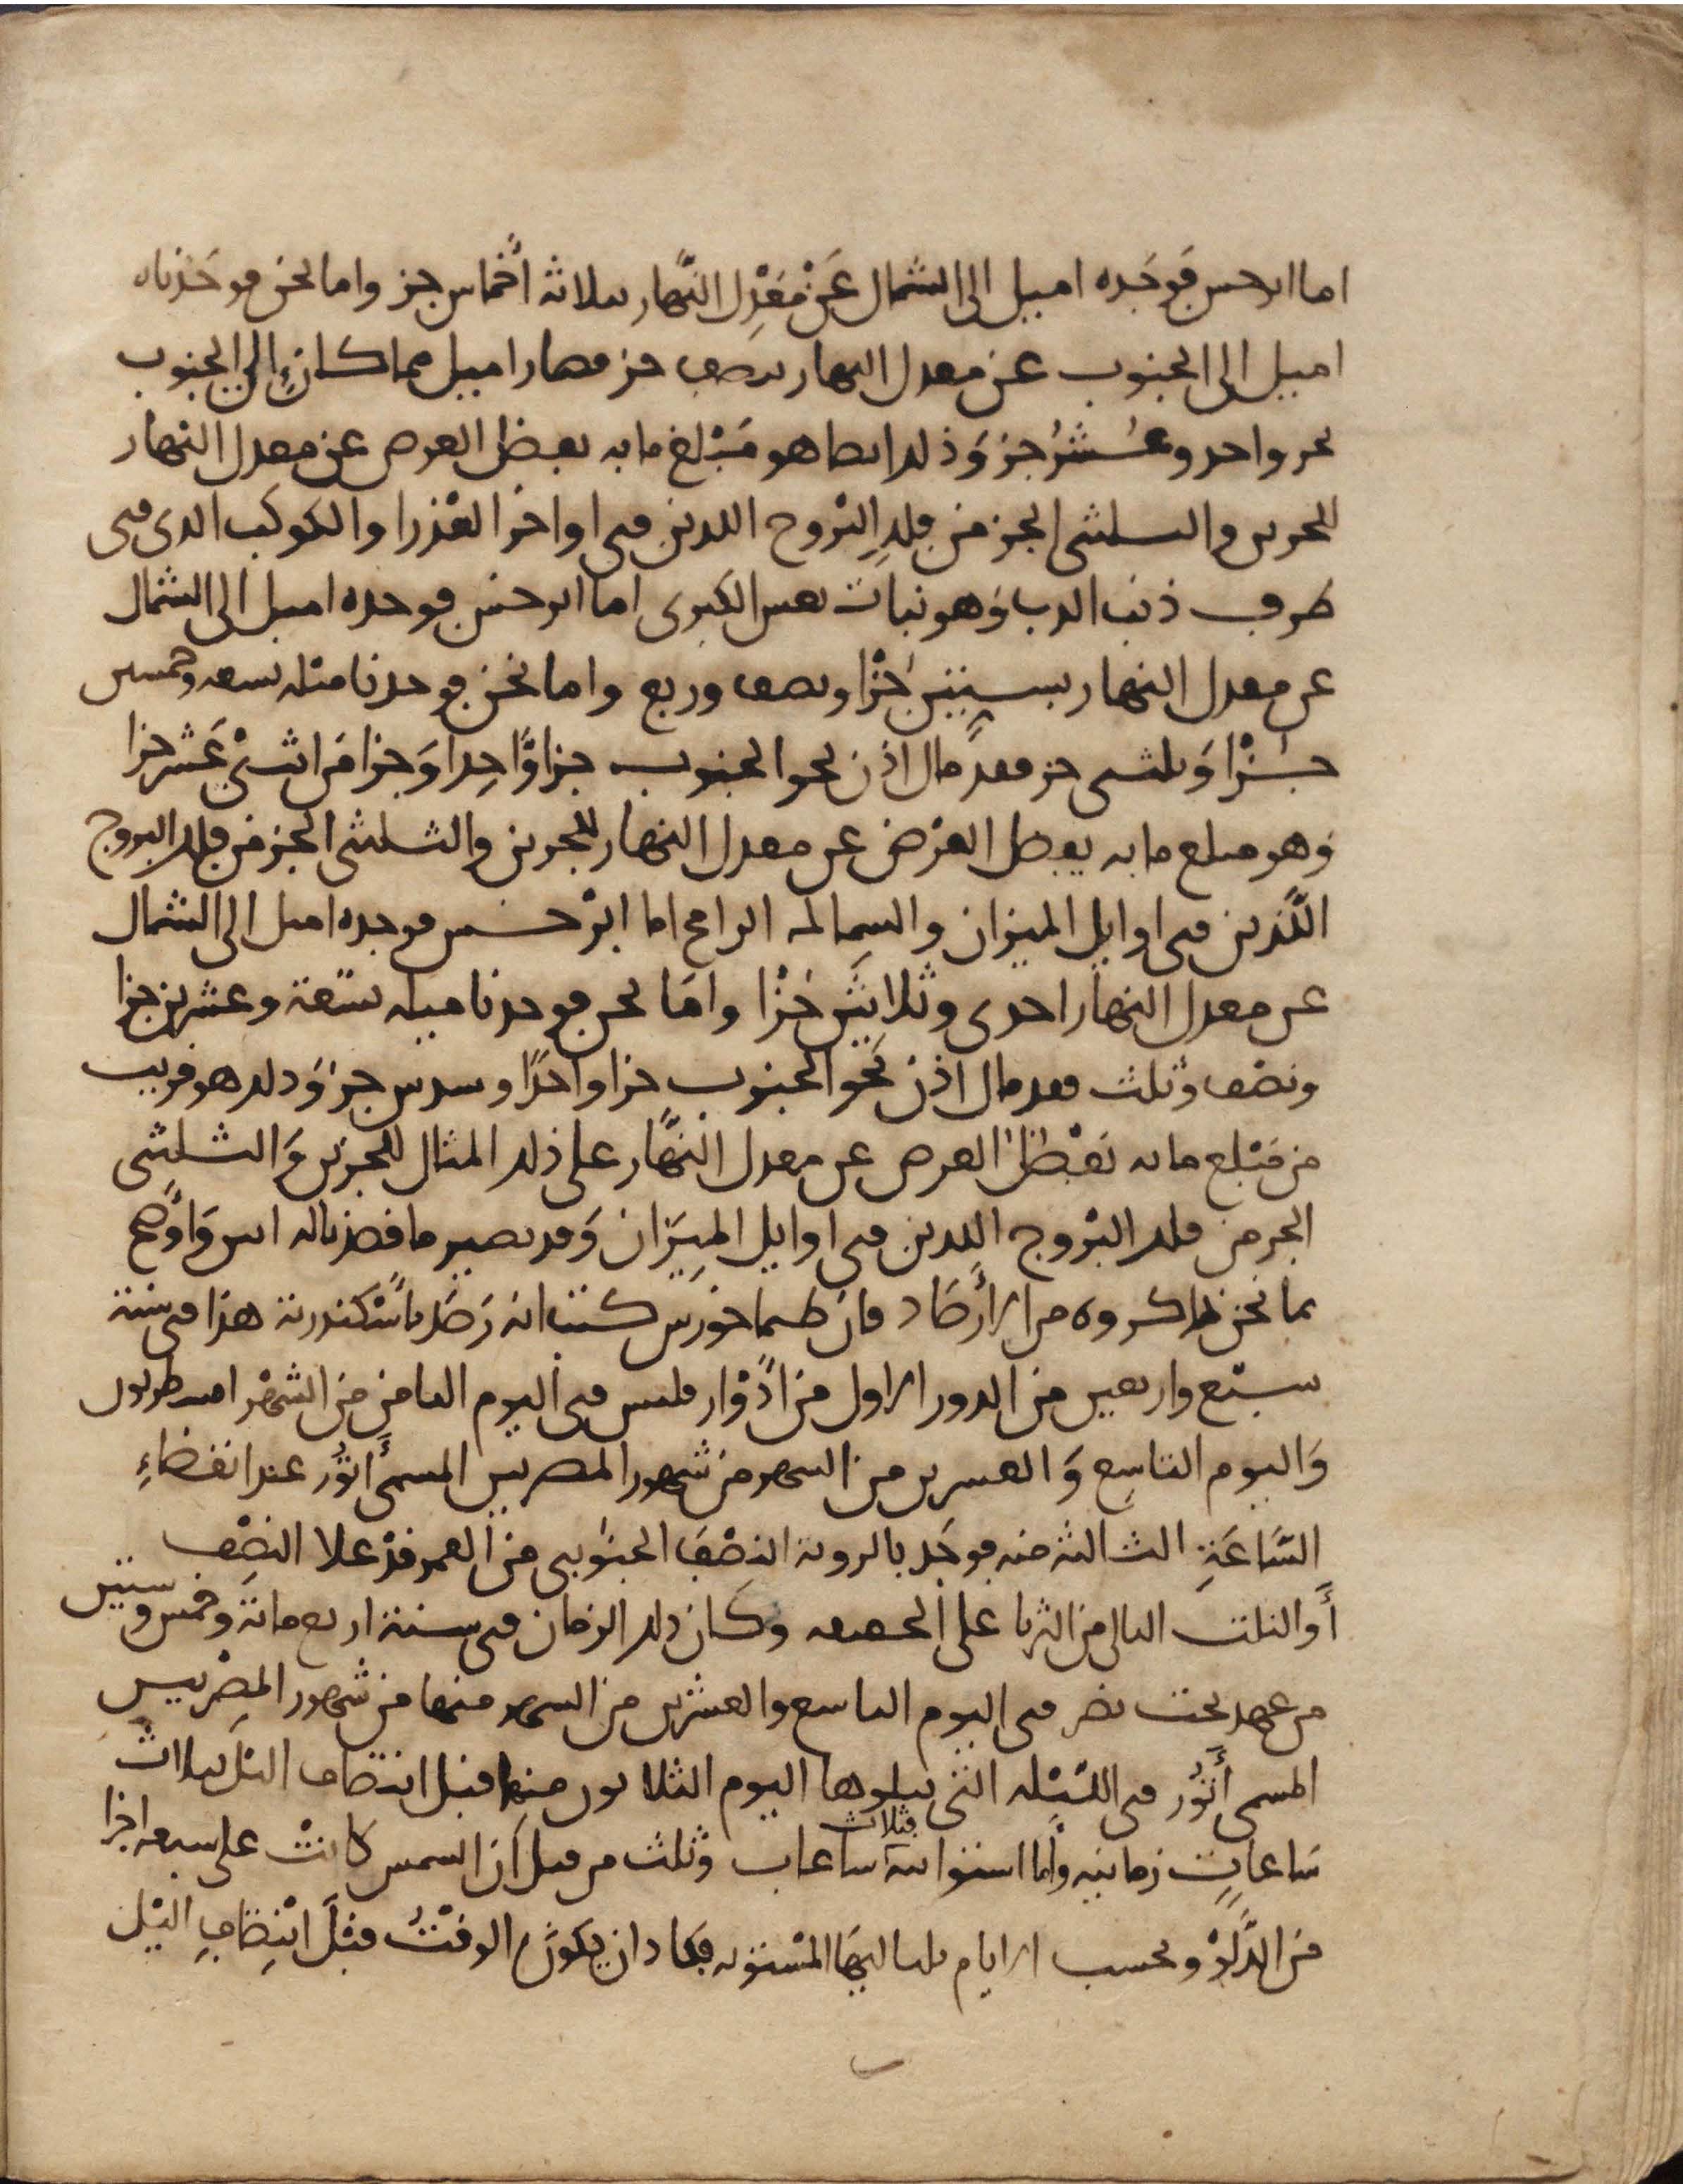 اما ابرخس فوجده اميل الى الشمال عن معدل النهار بثلاثة أخماس جز واما نحن فوجدناه
اميل الى الجنوب عن معدل النهار بنصف جز فصار اميل مما كان الى الجنوب
بجز واحد وعشر جز وذلك ايضا هو مبلغ ما به يفضل العرض عن معدل النهار
للجزين والثلثي الجز من فلك البروج اللذين في اواخر العذرا والكوكب الذي في
طرف ذنب الدب وهو نبات نعش الكبرى اما ابرخس فوجده اميل الى الشمال
عن معدل النهار بستين جزا ونصف وربع واما نحن فوجدنا مثله تسعه وخمسين
جزا وثلثي جز فقد مال اذن نحو الجنوب جزا واحدا وجزا من اثني عشر جزا
وهو مبلغ ما به يفضل العرض عن معدل النهار للجزين والثلثي الجز من فلك البروج
اللذين في اوايل الميزان والسماك الرامح اما ابرخس فوجده اميل الى الشمال
عن معدل النهار احدى وثلاثين جزا واما نحن فوجدنا ميله تسعة وعشرين جزا
ونصف وثلث فقد مال اذن نحو الجنوب جزا واحدا وسدس جز وذلك هو قريب
من مبلغ ما به يفضل العرض عن معدل النهار على ذلك المثال للجزين والثلثي
الجز من فلك البروج اللذين في اوايل الميزان وقد يصير ما قصدنا له ابين واوضح
بما نحن ذاكروه من الأرصاد فان طيماخورس كتب انه رصد باسكندرية هذا في سنة
سبع واربعين من الدور الاول من أدوار فلبس في اليوم الثامن من الشهر
واليوم التاسع والعشرين من الشهر من شهور المصريين المسمى أثور عند انقضاء
الساعة الثالثة منه فوجد بالروية النصف الجنوبي من القمر قد علا النصف
أو الثلث التالي من الثريا على الحقيقه وكان ذلك الزمان في سنة اربع مائة وخمس وستين
من عهد بخت نصر في اليوم التاسع والعشرين من الشهر منها من شهور المصريين
المسمى أثور في الليله التي يتلوها اليوم الثلاثون منها قبل انتصاف اليل بثلاث
ساعات زمانيه وأما استوائية فثلاث ساعات وثلث من قبل أن الشمس كانت على سبعه اجزا
من الدلو وبحسب الايام بلياليها المستويه فكاد ان يكون الوقت قبل انتصاف اليل